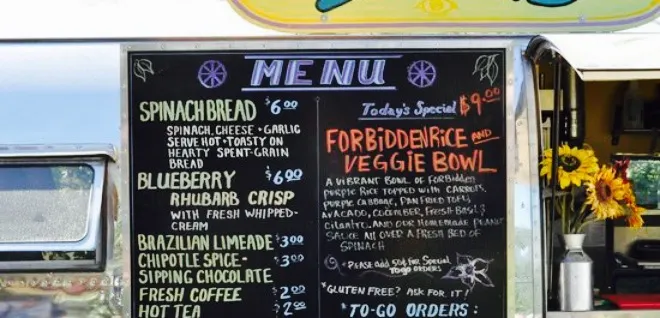 MENU
SPINACH BREAD $6.00
SPINACH, CHEESE + GARLIC
SERVE HOT + TOASTY ON
HEARTY SPENT-GRAIN
BREAD
BLUEBERRY $6.00
RHUBARB CRISP
WITH FRESH WHIPPED-
CREAM
BRAZILIAN LIMEADE $3.00
CHIPOTLE SPICE- $3.00
SIPPING CHOCOLATE
FRESH COFFEE $2.00
HOT TEA $2.00
Today's Special $9.00
FORBIDDEN RICE AND
VEGGIE BOWL
A VIBRANT BOWL OF FORBIDDEN
PURPLE RICE TOPPED WITH CARROTS,
PURPLE CABBAGE, PAN FRIED TOFU,
AVOCADO, CUCUMBER, FRESH BASIL &
CILANTRO, AND OUR HOMEMADE PEANUT
SAUCE ALL OVER A FRESH BED OF
SPINACH
*PLEASE ADD 50¢ FOR Special
TO-GO ORDERS
*GLUTEN FREE? ASK FOR IT!
*TO-GO ORDERS: